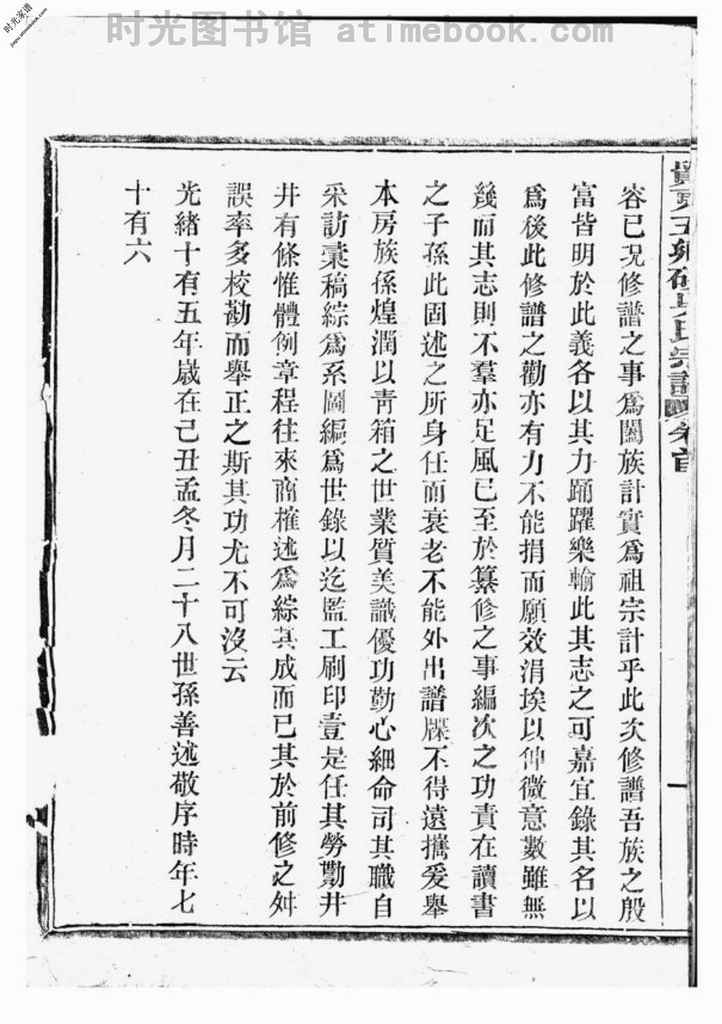 时光图书馆 atimebook.com
时光家谱
容已况修譜之事爲闔族計實爲祖宗計乎此次修譜吾族之殷
富皆明於此義各以其力踊躍樂輸此其志之可嘉宜錄其名以
爲後此修譜之勸亦有力不能捐而願效涓埃以伸微意數雖無
幾而其志則不羣亦足風已至於纂修之事編次之功責在讀書
之子孫此固述之所身任而衰老不能外出譜牒不得遠攜爰舉
本房族孫煌潤以靑箱之世業質美識優功勤心細命司其職自
采訪彙稿綜爲系圖編爲世錄以迄監工刷印壹是任其勞勩井
井有條惟體例章程往來商榷述爲綜其成而已其於前修之舛
誤率多校勘而舉正之斯其功尤不可沒云
光緒十有五年歲在己丑孟冬月二十八世孫善述敬序時年七
十有六
宗譜 卷首